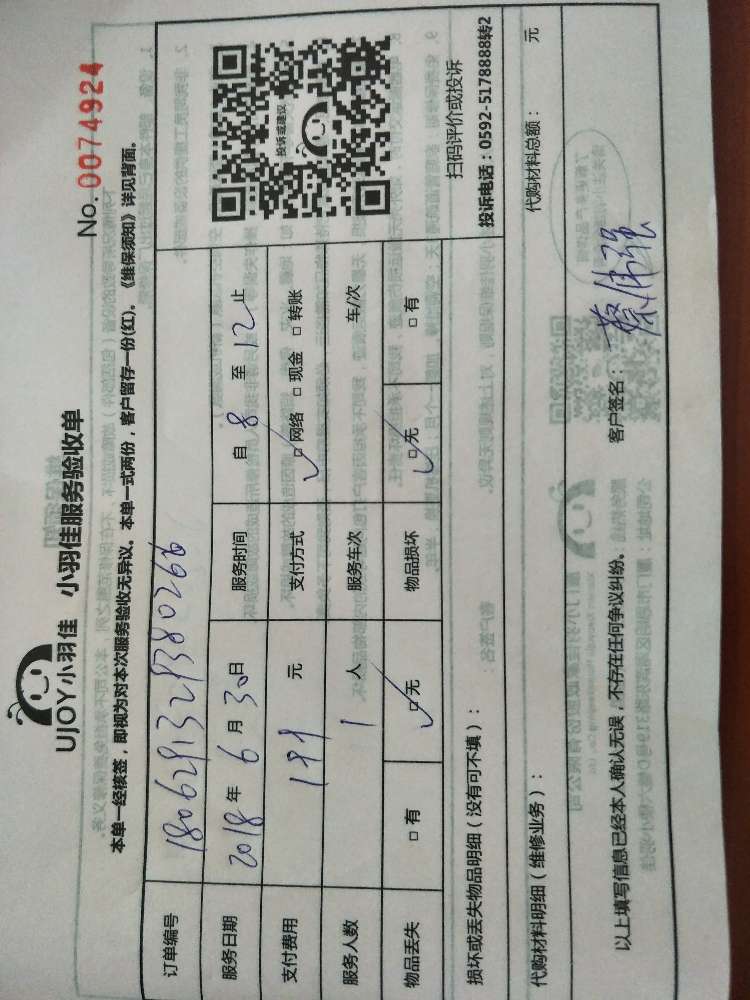 No. 0074924
UJOY小羽佳 小羽佳服务验收单
本单一经核签，即视为对本次服务验收无异议。本单一式两份，客户留存一份(红)。《维保须知》详见背面。
订单编号 1806291329380266
服务日期 2018年6月30日 服务时间 自8至12止
支付费用 199元 支付方式 □网络 □现金 □转账
服务人数 1人 服务车次 车/次
物品丢失 □有 □无 物品损坏 □无 □有
投诉或建议
扫码评价或投诉
投诉电话：0592-5178888转2
损坏或丢失物品明细（没有可不填）：
代购材料明细（维修业务）： 代购材料总额： 元
以上填写信息已经本人确认无误，不存在任何争议纠纷。 客户签名：蔡伟强